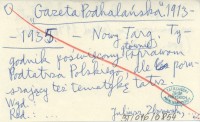 "Gazeta Podhalańska" 1913-
-1935 – Nowy Targ. Ty-
godnik poświęcony sprawom
Podtatrza Polskiego, ale poru-
szający też tematykę tatrz.
Wyd.
Red.: ...